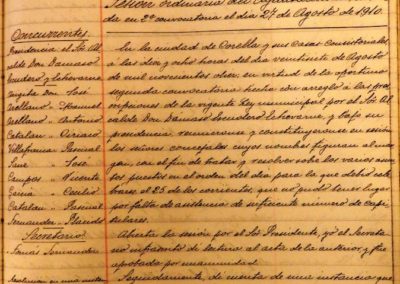 Sesión ordinaria del Ayuntamiento
da en 2ª convocatoria el día 27 de Agosto de 1910.
Concurrentes.
Presidencia el Sor Al-
calde Don Damaso
Escudero y Echevarria
José
Arellano " Manuel
Arellano " Antonio
Catalan " Ciriaco
Villafranca " Pascual
José
Campos " Vicente
Garcia " Cecilio
Catalan " Pascual
Fernandez " Placido
Secretario
Tomás Fernandez
En la ciudad de Corella y sus Casas Consistoriales
á las diez y ocho horas del veintisiete de Agosto
de mil novecientos diez, en virtud de la oportuna
segunda convocatoria hecha con arreglo á las pres
cripciones de la vigente Ley municipal por el Sor Al
calde Don Damaso Escudero Echevarria, y bajo su
presidencia, reunieronse y constituyeronse en sesión
los señores concejales cuyos nombres figuran al mar
gen, con el fin de tratar y resolver sobre los varios asun
tos puestos en el orden del día para la que debió cele
brarse el 25 de los corrientes, que no pudo tener lugar
por falta de asistencia de suficiente número de Capi
tulares.
Abierta la sesión por el Sor Presidente, yo el Secreta
rio infrascrito dí lectura al acta de la anterior, y fue
aprobada por unanimidad.
Seguidamente, dí cuenta de una instancia que